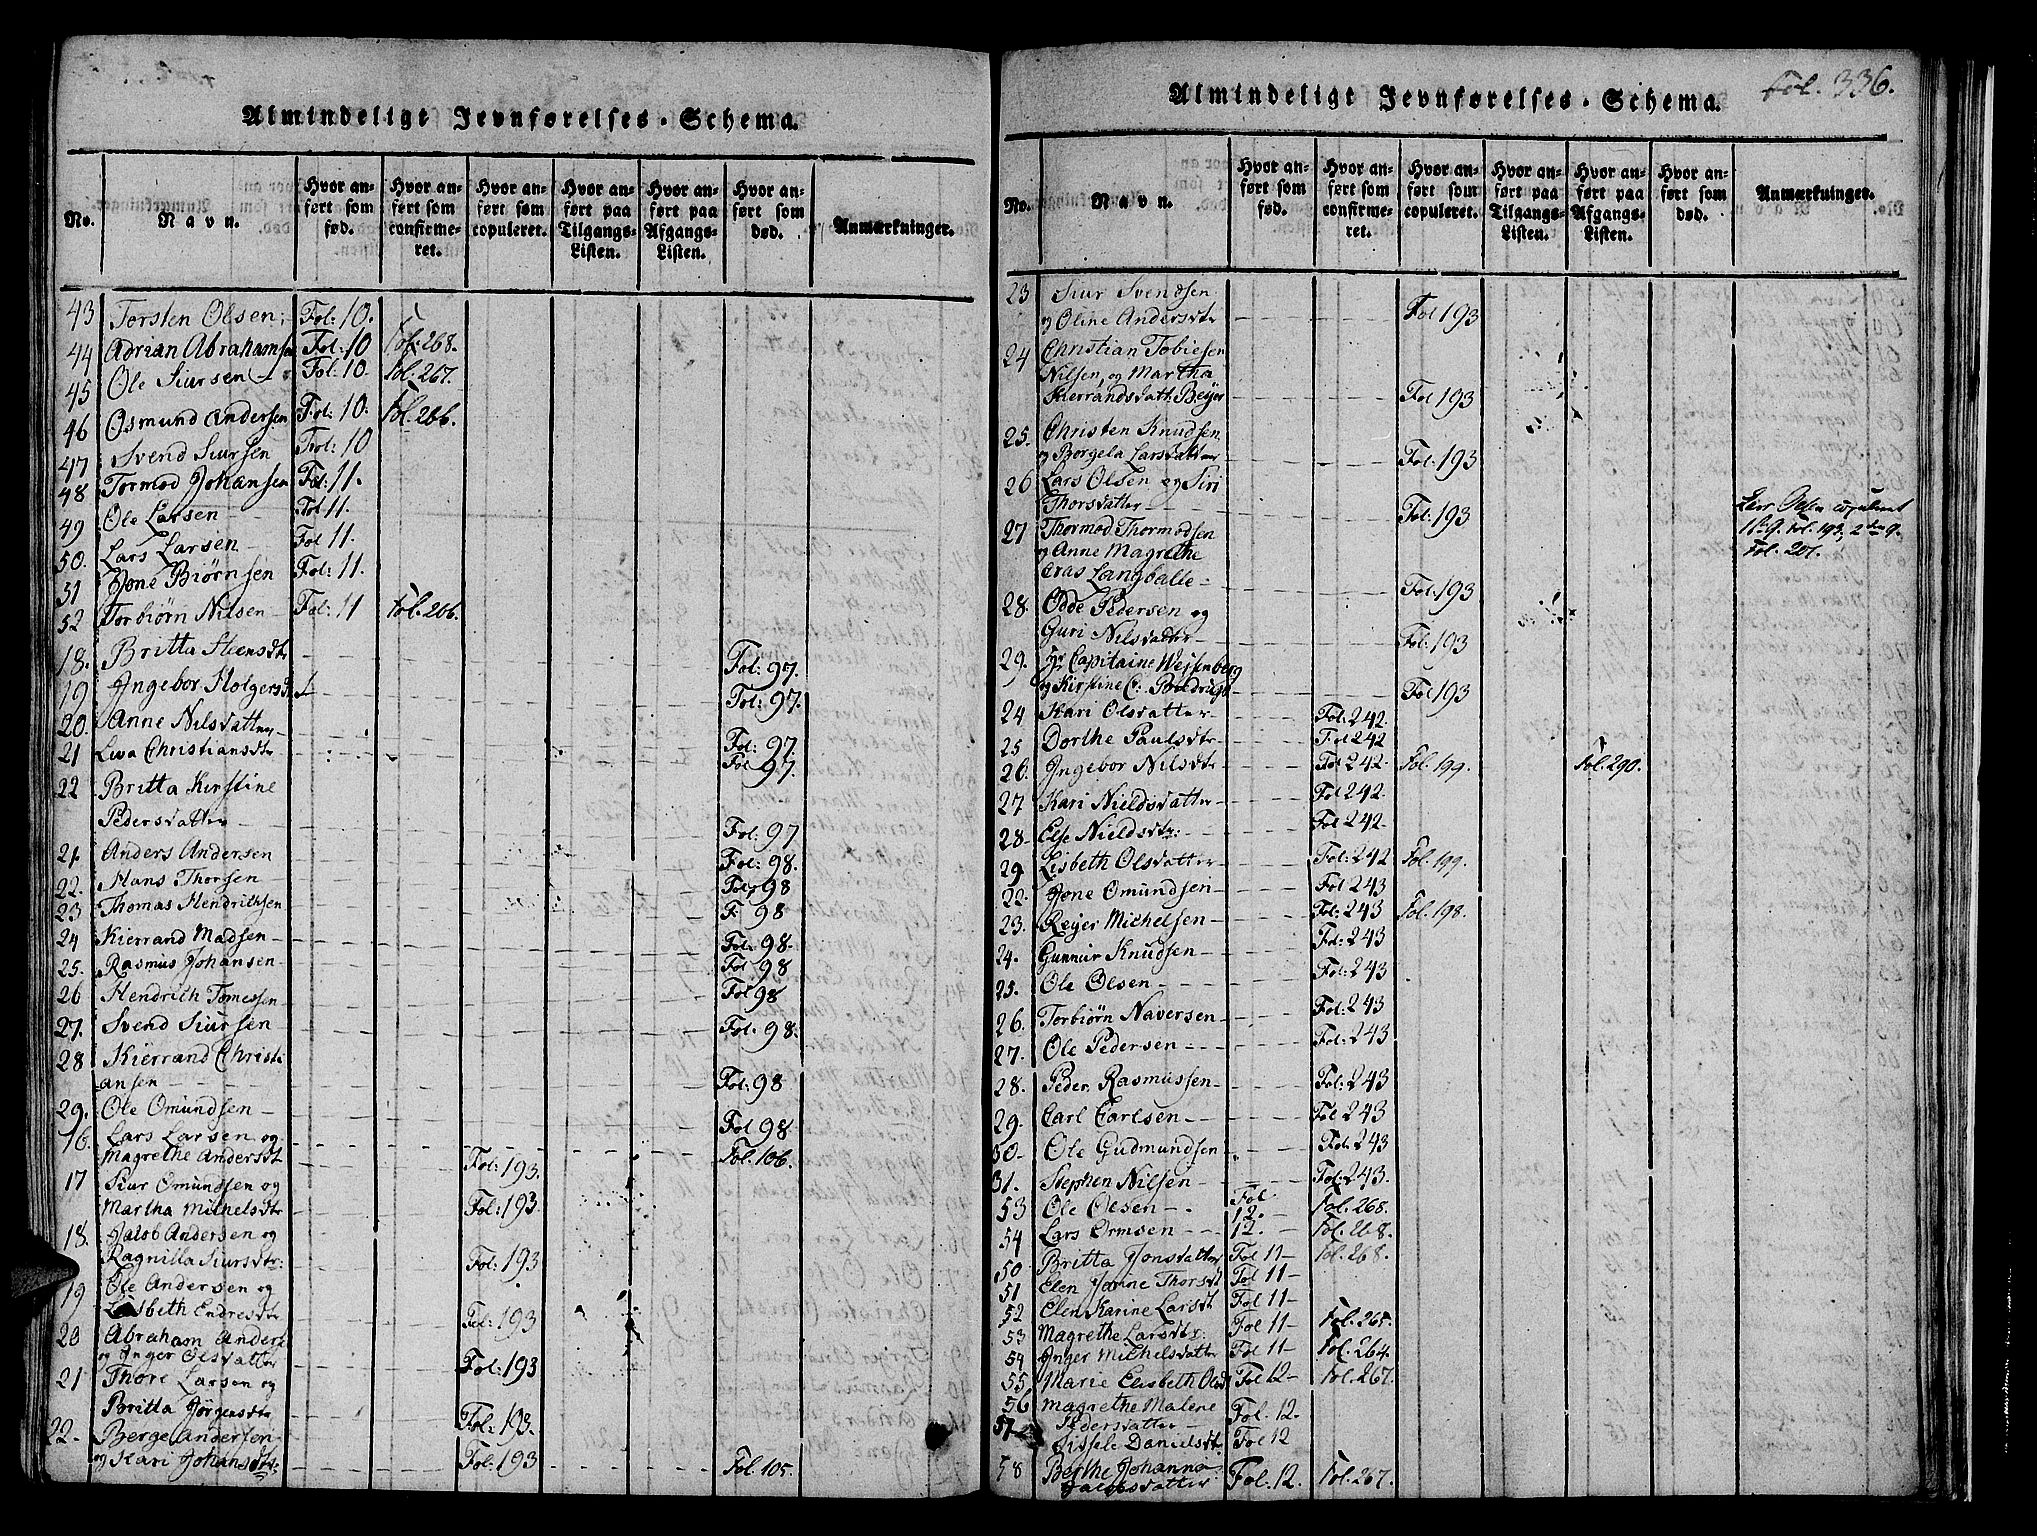 Almindeligt Jevnførelses-Schema.
No. Navn. Hvor anført som fød. Hvor anført som confirmeret. Hvor anført som copuleret. Hvor anført paa Tilgangs-Listen. Hvor anført paa Afgangs-Listen. Hvor anført som død. Anmærkninger.
43 Torsten Olsen, Fol: 10.
44 Adrian Abrahamsen Fol: 10 Fol: 268.
45 Ole Siursen Fol: 10. Fol. 267.
46 Osmund Andersen Fol: 10. Fol. 266.
47 Svend Siursen Fol: 10
48 Tormod Johansen Fol: 11.
49 Ole Larsen Fol 11.
50. Lars Larsen Fol 11.
51 Jone Biørnsen Fol: 11.
52 Torbiørn Nilsen Fol: 11 Fol. 266.
18. Britta Steensdtr Fol: 97.
19 Ingebor Holgersd Fol: 97.
20. Anne Nilsdatter Fol: 97.
21 Lisa Christiansdtr Fol 97.
22 Britta Kirstine
Pedersdatter Fol: 97
21. Anders Andersen Fol: 98.
22. Hans Thorsen Fol: 98
23 Thomas Hendrichsen F: 98
24 Kierrand Madsen Fol: 98.
25. Rasmus Johansen Fol 98
26 Hendrich Tomessen Fol 98
27. Svend Siursen Fol. 98.
28 Kierrand Christi
ansen Fol: 98
29. Ole Omundsen Fol 98
16. Lars Larsen og
Magrethe Andersdt Fol: 193. Fol. 106.
17 Siur Omundsen og
Martha Michelsdtr Fol: 193
18. Jacob Andersen og
Ragnilla Siursdtr: Fol: 193
19 Ole Andersen og
Lisbeth Endresdtr Fol: 193
20 Abraham Anders
og Inger Olsdatter Fol: 193
21 Thore Larsen og
Britta Jørgensdtr Fol: 193.
22. Berge Andersen
og Kari Johansdtr Fol: 193 Fol. 105.
Almindeligt Jevnførelses-Schema. Fol. 336.
No. Navn. Hvor anført som fød. Hvor anført som confirmeret. Hvor anført som copuleret. Hvor anført paa Tilgangs-Listen. Hvor anført paa Afgangs-Listen. Hvor anført som død. Anmærkninger.
23 Siur Svendsen
og Oline Andersdtr Fol 193
24 Christian Tobiesen
Nilsen, og Martha
Kierrandsdatt. Beyer Fol 193
25. Christen Knudsen
og Borgela Larsdatter Fol. 193
26 Lars Olsen og Siri
Thorsdatter Fol: 193 Lars Olsen copuleret
27 Thormod Thormodsen 1ste g. Fol. 193, 2den g.
og Anne Magrethe Fol. 201.
Cras Langballe Fol: 193
28. Odde Pedersen og
Guri Nilsdatter Fol: 193
29. Hr Capitaine Westenberg
og Kirstine C: Fol 193
24 Kari Olsdatter Fol: 242.
25. Dorthe Paulsdtr Fol 242
26. Ingebor Nilsdtr Fol 242. Fol. 199. Fol. 290.
27 Kari Nieldsdatter Fol 242.
28. Else Nieldsdtr: Fol 242.
29 Lisbeth Olsdatter Fol: 242 Fol. 199.
22. Jone Omundsen Fol 243
23. Reyer Michelsen Fol: 243 Fol. 198.
24. Gunnur Knudsen Fol: 243
25. Ole Olsen Fol: 243
26. Torbiørn Naversen Fol: 243
27. Ole Pedersen Fol: 243
28. Peder Rasmussen Fol: 243
29. Carl Carlsen Fol 243
30. Ole Gudmundsen Fol: 243
31. Stephen Nilsen Fol: 243.
53 Ole Olsen Fol 12. Fol. 268.
54 Lars Ormsen 12. Fol. 268.
50. Britta Jonsdatter Fol 11 Fol. 268.
51 Elen Janne Thorsdt Fol 11
52 Elen Karine Larsdt Fol 11
53 Magrethe Larsdtr: Fol 11 Fol. 265.
54 Inger Michelsdatter Fol 11 Fol. 264.
55 Marie Elisbeth Olsd Fol 12 Fol. 267.
56 Magrethe Malene
Pedersdatter Fol. 12.
57 Sissele Danielsdt Fol 12
58 Berthe Johanna
Jacobsdatter Fol. 12. Fol. 267.